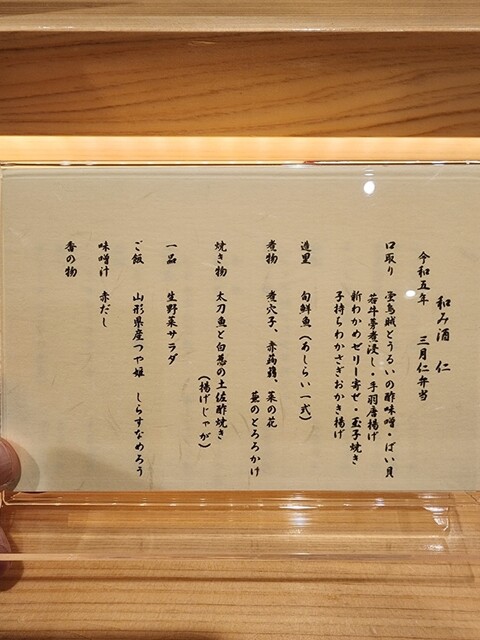 和み酒　仁
令和五年　三月仁弁当
口取り　蛍烏賊とうるいの酢味噌・ばい貝
若牛蒡煮浸し・手羽唐揚げ
新わかめゼリー寄せ・玉子焼き
子持ちわかさぎおかき揚げ
造里　旬鮮魚（あしらい一式）
煮物　煮穴子、赤蒟蒻、菜の花
蕪のとろろかけ
焼き物　太刀魚と白葱の土佐酢焼き
（揚げじゃが）
一品　生野菜サラダ
ご飯　山形県産つや姫　しらすなめろう
味噌汁　赤だし
香の物